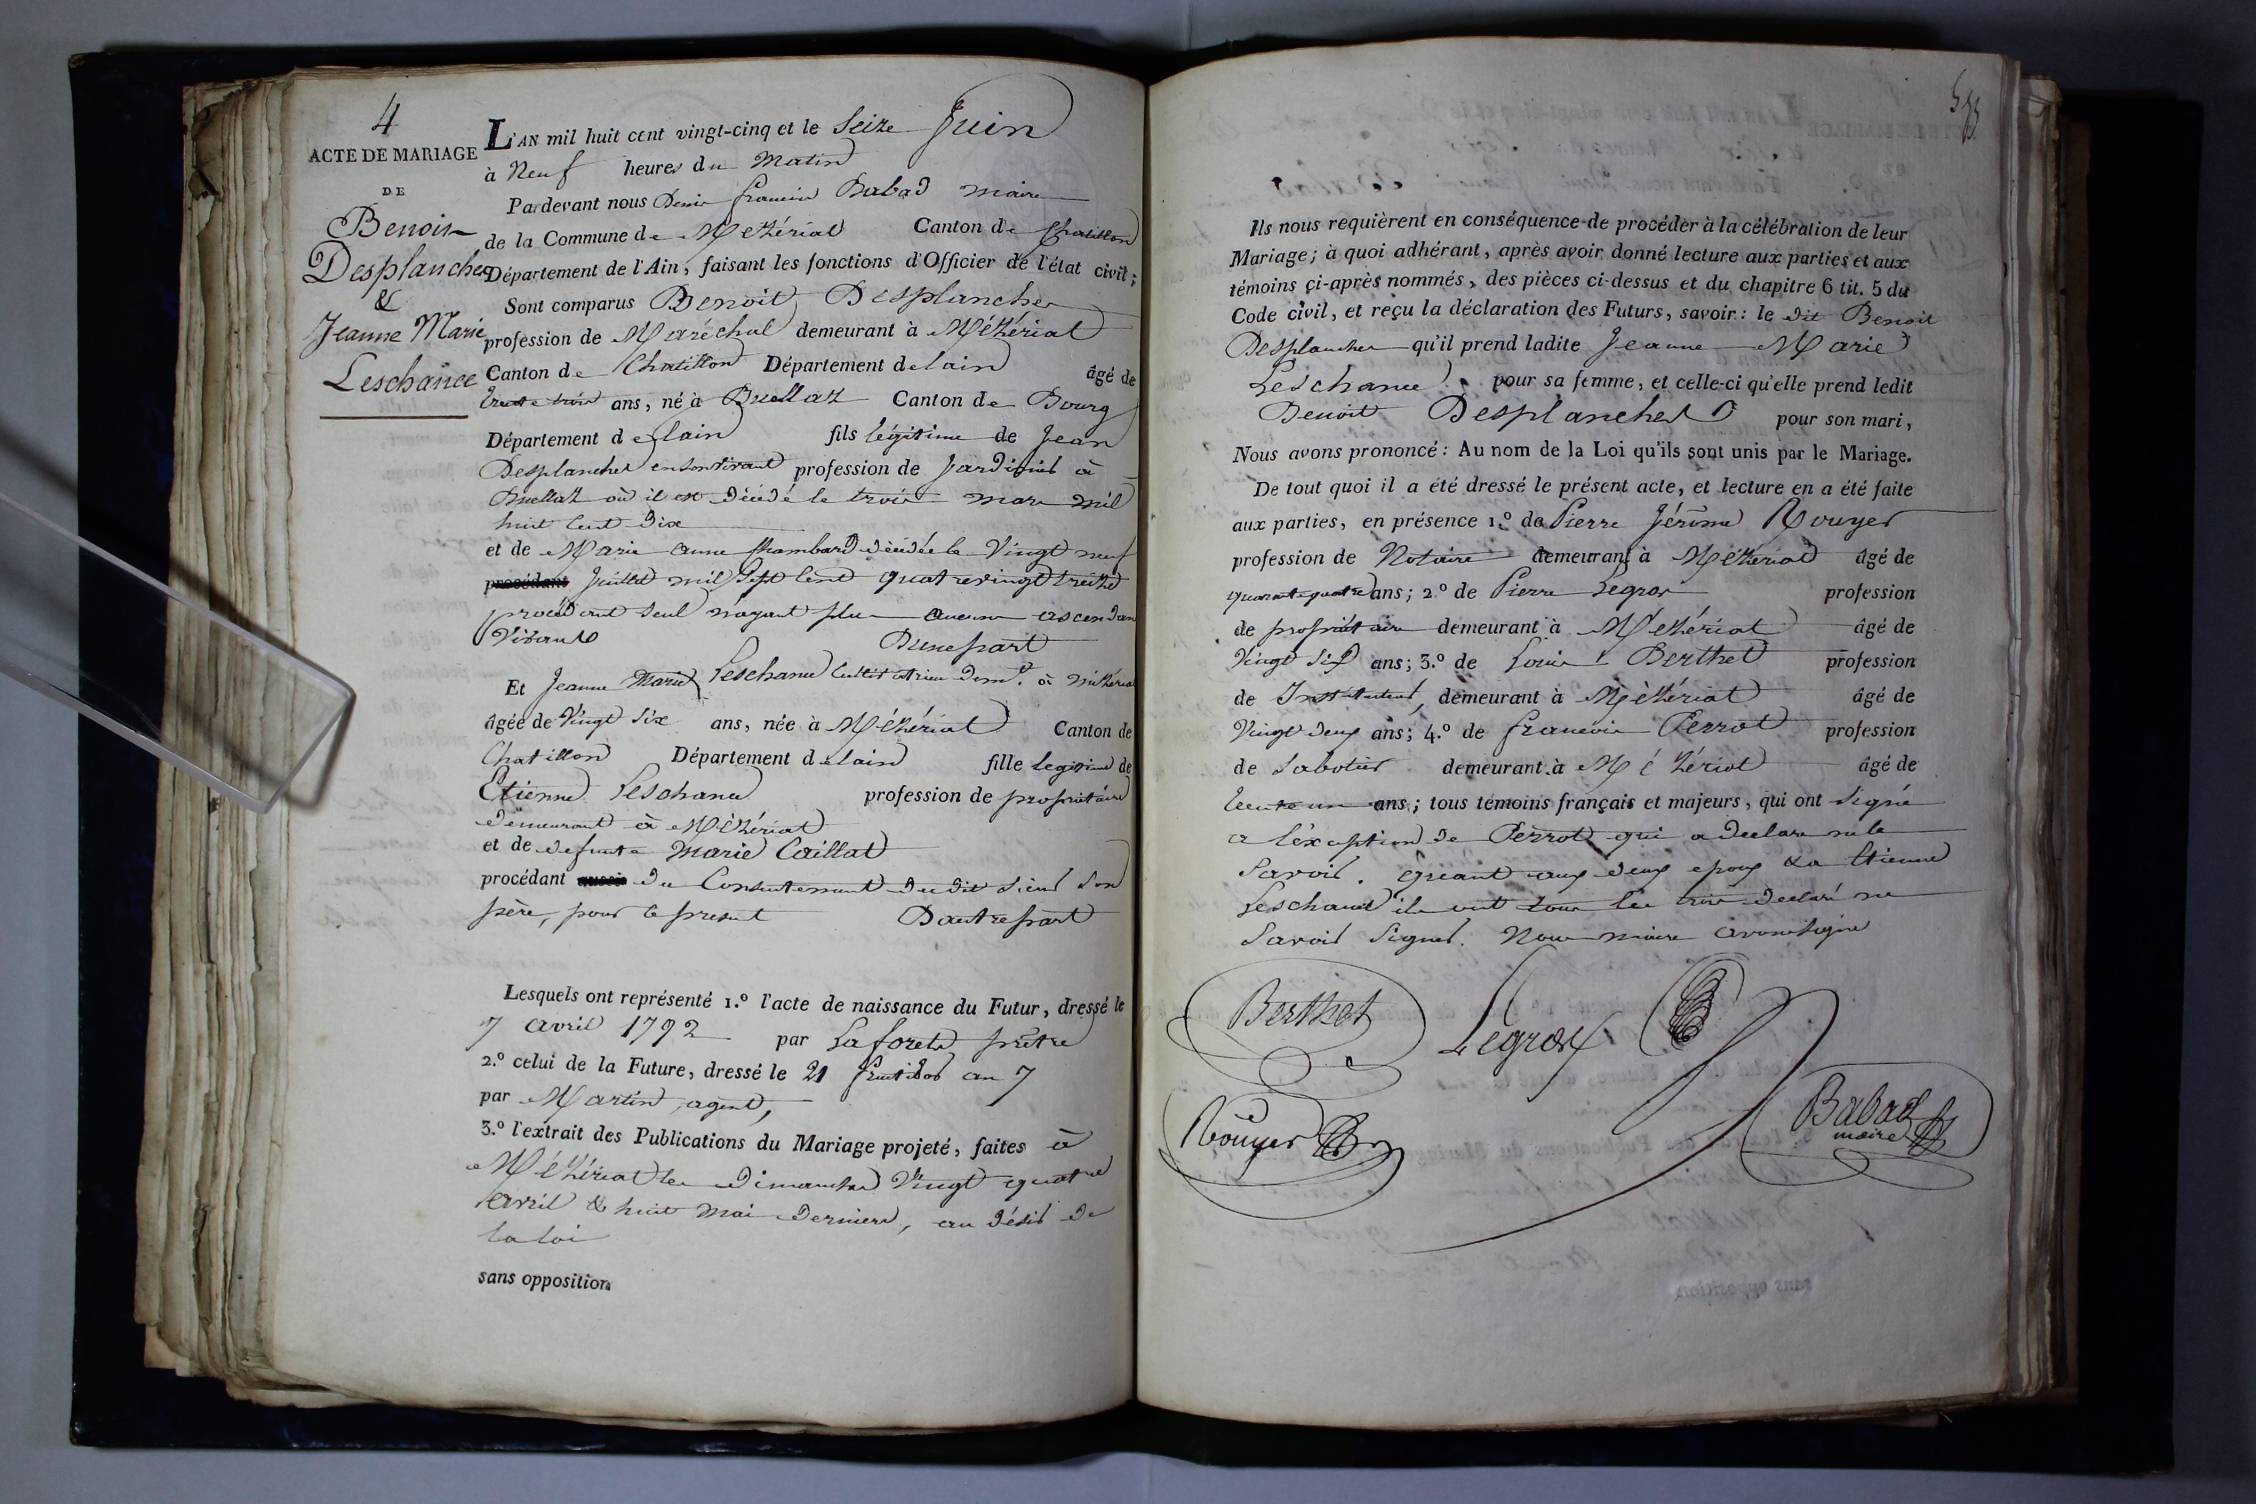 4
ACTE DE MARIAGE
DE
Benoit
Desplanches
&
Jeanne Marie
Leschance
L'AN mil huit cent vingt-cinq et le Seize Juin
à Neuf heures du Matin
Pardevant nous Denis françois Babad maire
de la Commune de Mézériat Canton de Chatillon
Département de l'Ain, faisant les fonctions d'Officier de l'état civil;
Sont comparus Benoit Desplanches
profession de Maréchal demeurant à Mézériat
Canton de Chatillon Département de lain âgé de
trente trois ans, né à Buellaz Canton de Bourg
Département de lain fils légitime de Jean
Desplanches en son vivant profession de Jardinier à
Buellaz où il est décédé le trois mars mil
huit cent dix
et de Marie anne décédée le Vingt neuf
procédant Juillet mil sept cent quatrevingt treize
procédant seul n'ayant plus aucun ascendant
Vivant D'unepart
Et Jeanne Marie Leschance Cultivatrice demt. à Mézériat
âgée de Vingt Six ans, née à Mézériat Canton de
Chatillon Département de lain fille legitime de
Etienne Leschance profession de propriétaire
demeurant à Mézériat
et de defunte Marie Caillat
procédant du Consentement du dit Sieur Son
père, pour ce présent D'autrepart
Lesquels ont représenté 1.º l'acte de naissance du Futur, dressé le
7 avril 1792 par Laforets prêtre
2.º celui de la Future, dressé le 21 fructidor an 7
par Martin, agent,
3.º l'extrait des Publications du Mariage projeté, faites à
Mézériat les dimanches Vingt quatre
avril & huit Mai derniers, au désir de
la loi
sans opposition
Ils nous requièrent en conséquence de procéder à la célébration de leur
Mariage; à quoi adhérant, après avoir donné lecture aux parties et aux
témoins çi-après nommés, des pièces ci-dessus et du chapitre 6 tit. 5 du
Code civil, et reçu la déclaration des Futurs, savoir: le dit Benoit
Desplanches qu'il prend ladite Jeanne Marie
Leschance pour sa femme, et celle-ci qu'elle prend ledit
Benoit Desplanches pour son mari,
Nous avons prononcé: Au nom de la Loi qu'ils sont unis par le Mariage.
De tout quoi il a été dressé le présent acte, et lecture en a été faite
aux parties, en présence 1.º de Pierre Jérôme Rouyer
profession de Notaire demeurant à Mézériat âgé de
quarante quatre ans; 2.º de Pierre Legros profession
de propriétaire demeurant à Mézériat âgé de
Vingt six ans; 3.º de Louis Berthet profession
de Instituteur, demeurant à Mézériat âgé de
Vingt deux ans; 4.º de françois Perrot profession
de Sabotier demeurant à Mézériat âgé de
trente un ans; tous témoins français et majeurs, qui ont signé
a l'exception de Perrot qui a declaré ne le
Savoir. quant aux deux epoux & a Etienne
Leschance ils ont tous les trois declaré ne
Savoir Signer. Nous maire avons signé
Berthet
Legros
Rouyer
Babad
maire